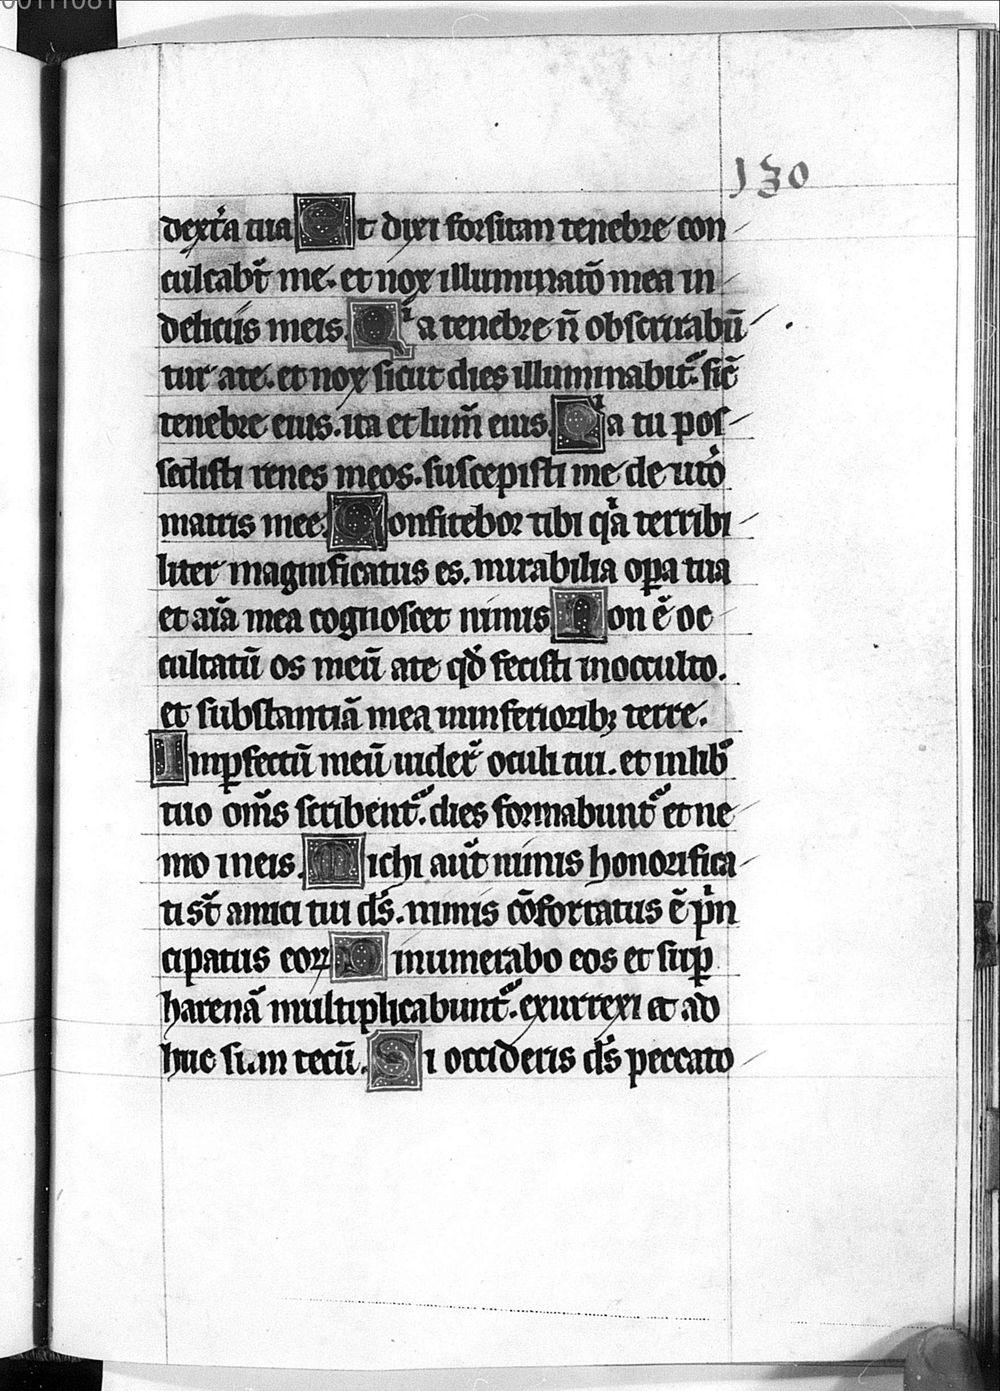 00111081
130
dext̾a tua Et dixi forsitan tenebre con
culcabūt me. et nox illuminatō mea in
deliciis meis. Qia tenebre n̄ obscurabū
tur a te. et nox sicut dies illuminabit᷑. sic̄
tenebre eius. ita et lum̄ eius. Qia tu pos
sedisti renes meos. suscepisti me de utō
matris mee. Confitebor tibi qͥa terribi
liter magnificatus es. mirabilia oꝑa tua
et aīa mea cognoscet nimis Non ē oc
cultatū os meū a te qđ fecisti in occulto.
et substantiā mea in inferioribꝫ terre.
Imꝑfectū meū uider̄ oculi tui. et in lib̄
tuo om̄s scribent᷑. dies formabunt᷑ et ne
mo in eis. Michi aut̄ nimis honorifica
ti st̄ amici tui ds̄. nimis cōfortatus ē pͥn
cipatus eoꝝ Dinumerabo eos et suꝑ
harenā multiplicabunt᷑. exurrexi et ad
huc sum tecū. Si occideris ds̄ peccato